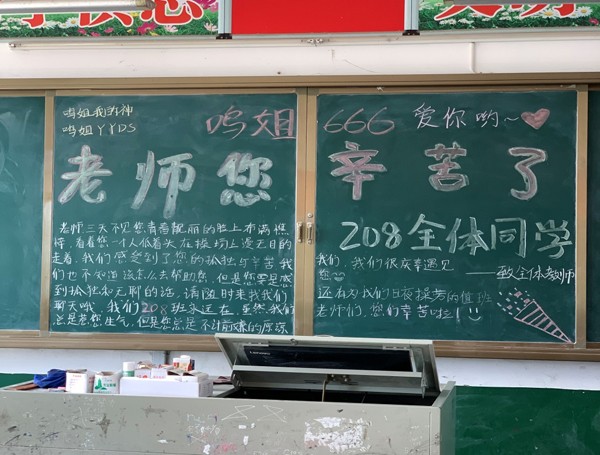 鸣姐我的神
鸣姐YYDS
鸣姐 666 爱你哟~
老师您 辛苦了
208全体同学
——致全体老师
老师三天不见您青春靓丽的脸上布满憔
悴,看着您一个人低着头在操场上漫无目的
走着,我们感受到了您的孤独与辛苦我
们也不知道该怎么去帮助您,但是您要是感
到孤独和无聊的话,请随时来找我们
聊天哦,我们208班永远在,虽然我们
总是惹您生气,但是您总是不计前嫌的原谅
我们,我们很庆幸遇见
您
还有为我们日夜操劳的值班
老师们,您们辛苦啦!